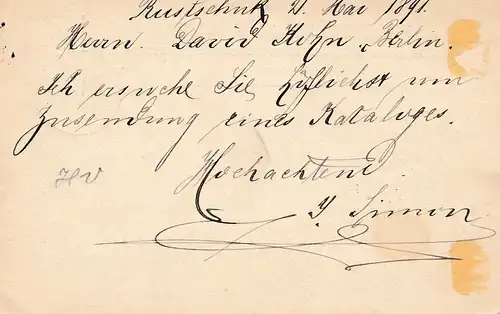 Rustschuk 21. Mai 1891.
Herrn. David Kohn, Berlin.
Ich ersuche Sie höflichst um
Zusendung eines Kataloges.
Hochachtend
Simon